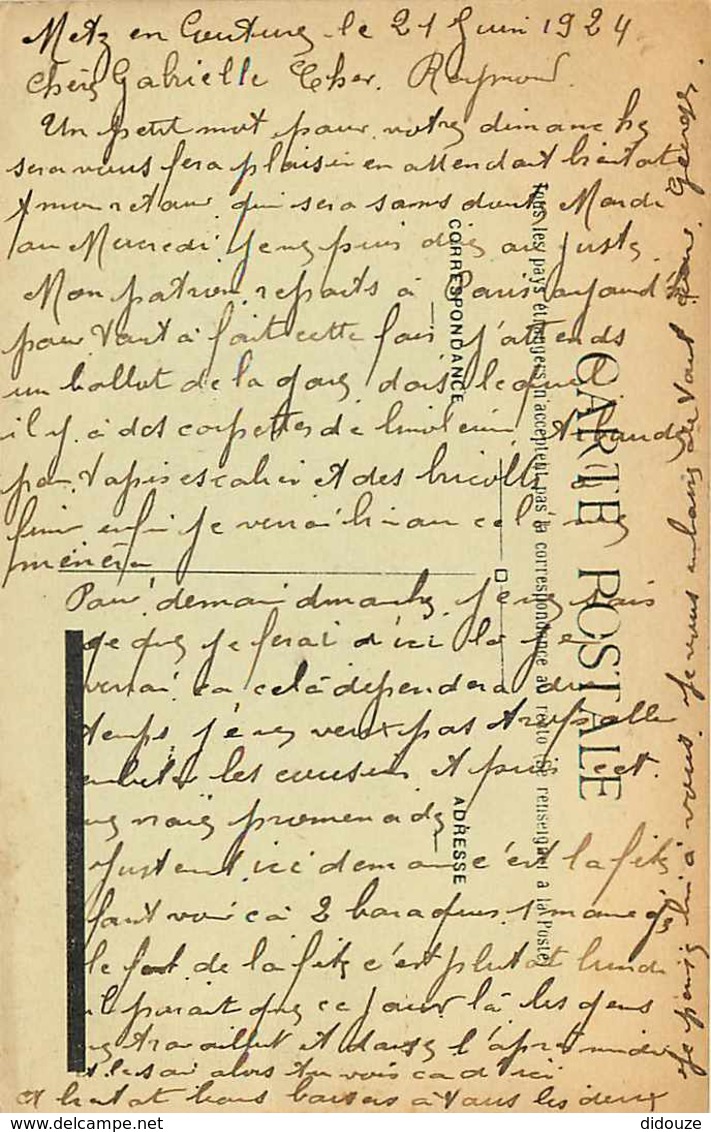 Metz en Couture le 21 Juin 1924
Chère Gabrielle Cher Raymond.
Un petit mot pour votre dimanche
sera vous fera plaisir en attendant bientot
mon retour qui sera sans doute Mardi
ou Mercredi je ne puis dire au juste
Mon patron reparts à Paris aujourd'h
pour tout à fait cette fois j'attends
un ballot de la gare dans lequel
il y à des carpettes de linoléum
pour tapis escalier et des bricolles
finir enfin je verrai bien ou cela me
mènera
Pour demain dimanche je ne sais
ce que je ferai d'ici la je
verrai ca celà dependera du
temps, je ne veux pas trop aller
embeter les cousins et puis c'est
une vraie promenade
Justement ici demain c'est la fête
faut voir cà 2 baraques 1 manège
le fort de la fête c'est plutot lundi
il parait que ce jour là les gens
ne travaillent et danse l'après midi
et le soir alors tu vois ca d'ici
et bientot bons baisers à tous les deux
Je pense bien à vous. Je vous embrasse de tout cœur. Georges.
CARTE POSTALE
Tous les pays étrangers n'acceptent pas la correspondance au recto (Se renseigner à la Poste)
CORRESPONDANCE
ADRESSE
© didouze